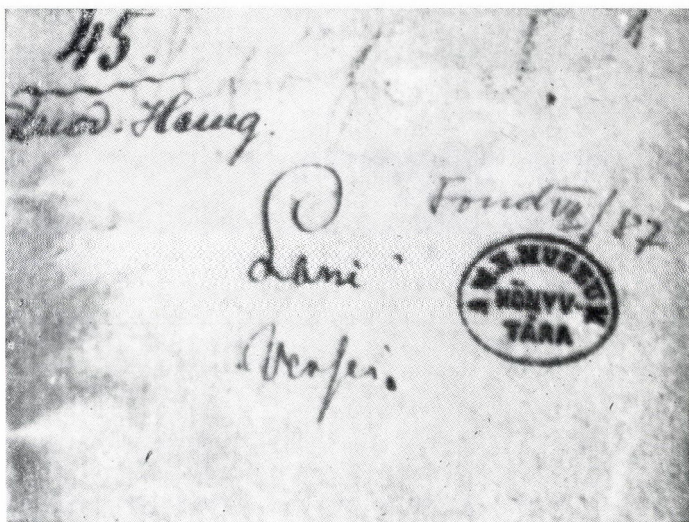 45.
Duod. Hung.
Fond VII/87
Lani
Versei.
A M. N. MUZEUM
KÖNYV-
TÁRA